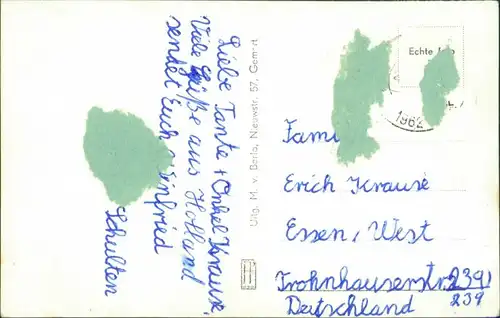 Liebe Tante + Onkel Krause,
Viele Grüße aus Holland
sendet Euch Winfried
Schulten
Uitg. M. v. Berlo, Nieuwstr. 57, Gemert
Echte
1962
Fami
Erich Krause
Essen, West
Frohnhauserstr. 239
239
Deutschland